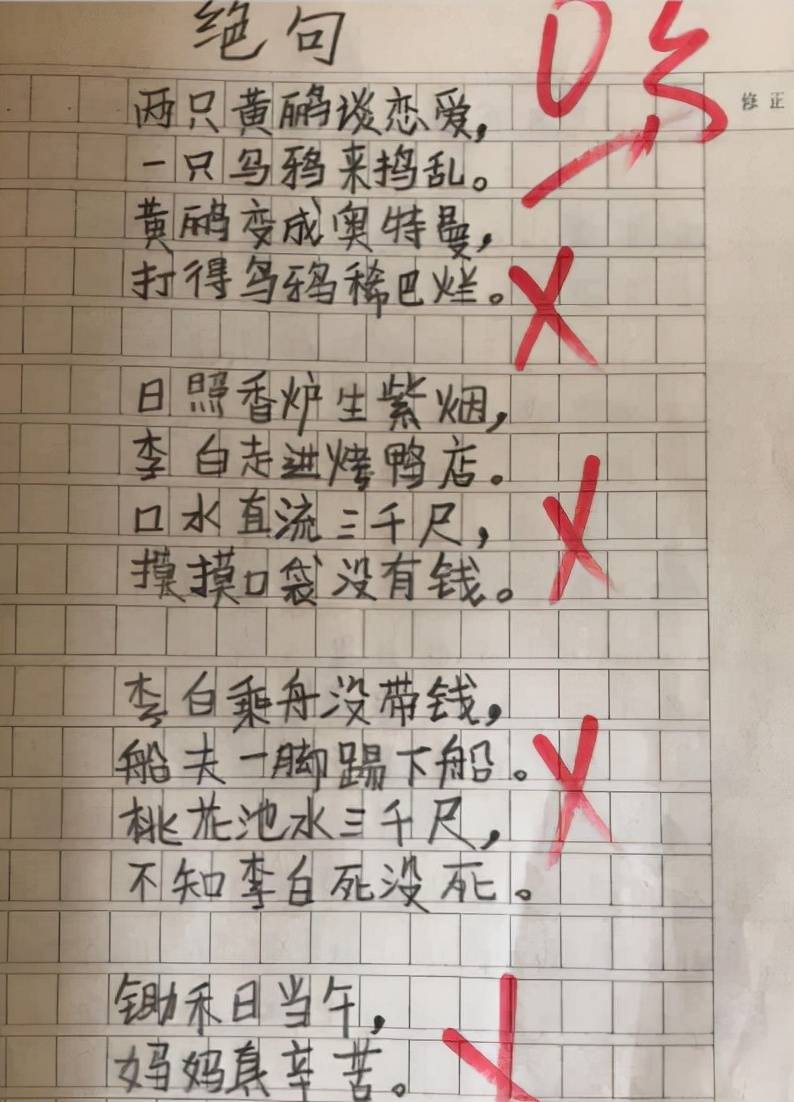 绝句
0分
修正
两只黄鹂谈恋爱，
一只乌鸦来捣乱。
黄鹂变成奥特曼，
打得乌鸦稀巴烂。
日照香炉生紫烟，
李白走进烤鸭店。
口水直流三千尺，
摸摸口袋没有钱。
李白乘舟没带钱，
船夫一脚踢下船。
桃花池水三千尺，
不知李白死没死。
锄禾日当午，
妈妈真辛苦。